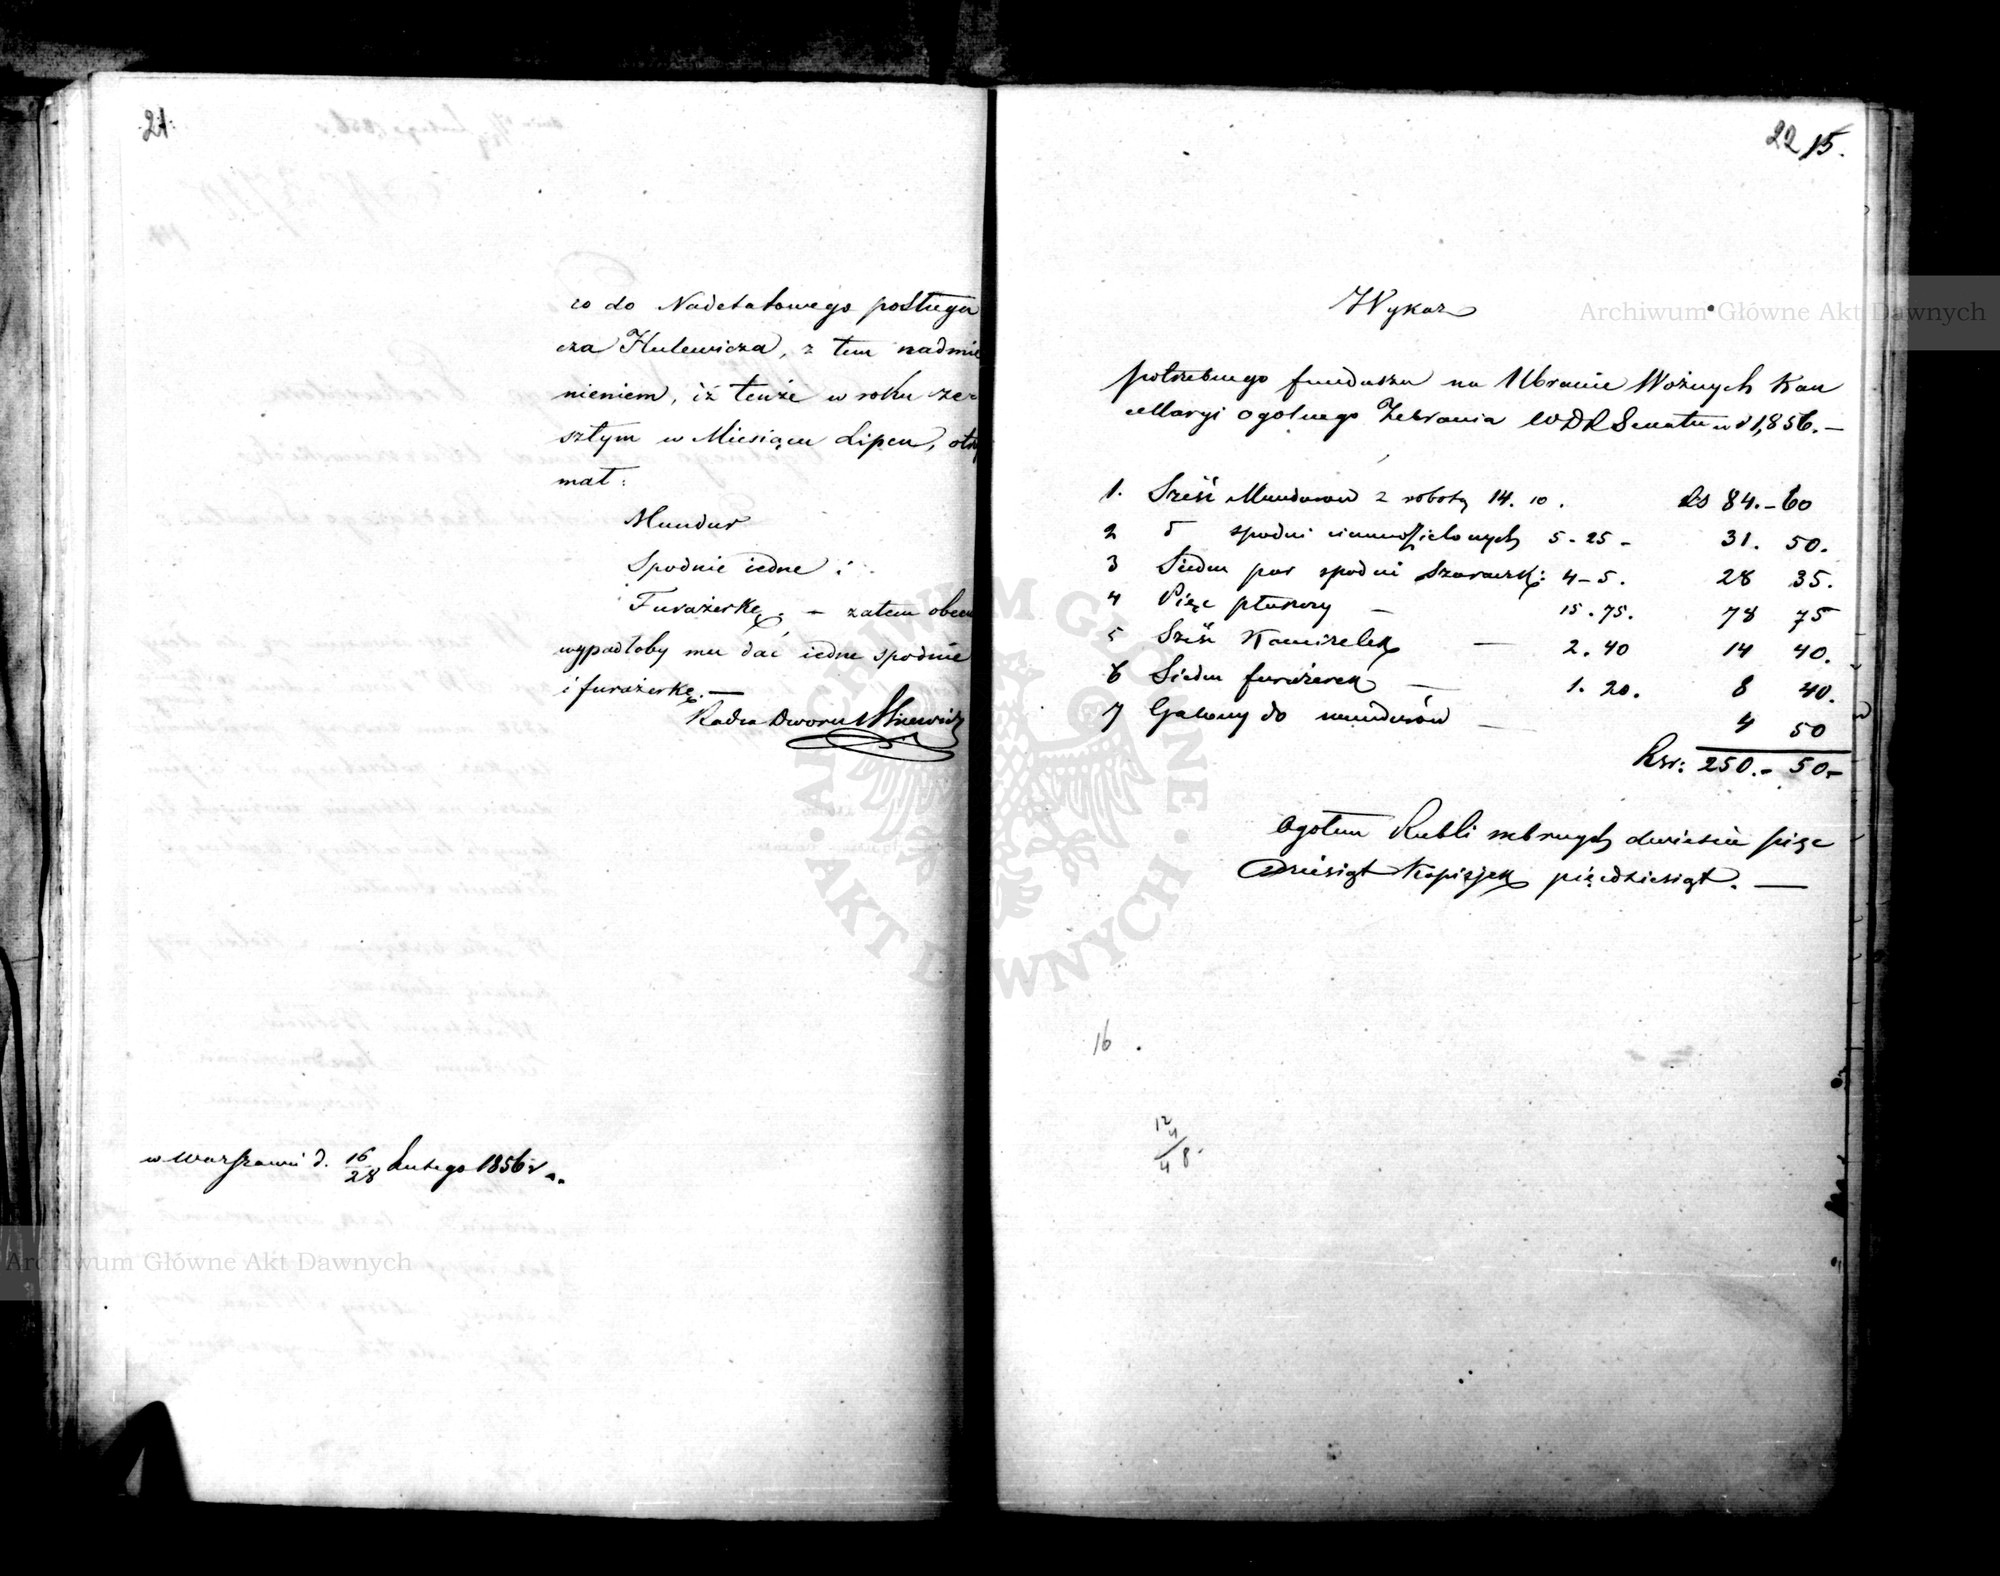 21.
co do Nadetatowego posługa
cza Hulewicza, z tem nadmie
nieniem, iż tenże w roku ze
szłym w Miesiącu Lipcu, otrzy
mał:
Mundur
Spodnie iedne i
Furażerkę, – zatem obecn
wypadłoby mu dać iedne spodnie
i furażerkę. —
Radca Dworu
w Warszawie d. 16/28 Lutego 1856 r.
22 15.
Wykaz
potrzebnego funduszu na Ubranie Woźnych Kan
cellaryi ogólnego Zebrania WDR Senatu w r 1,856. —
1. Sześć Mundurów z robotą 14. 10. Rs 84. – 60
2 5 spodni ciemnozielonych 5 - 25 – 31. 50.
3 Siedm par spodni Szaraczk: 4 – 5. 28 35.
4 Pięc płaszczy – 15. 75. 78 75
5 Sześć Kamizelek — 2. 40 14 40.
6 Siedm furażerek — 1. 20. 8 40.
7 Galony do mundurów — 4 50
Rsr: 250. – 50 –
Ogółem Rubli srebrnych dwieście pięc
dziesiąt Kopiejek pięćdziesiąt. —
16
12
4
4 8
Archiwum Główne Akt Dawnych
Archiwum Główne Akt Dawnych
ARCHIWUM GŁÓWNE · AKT DAWNYCH ·